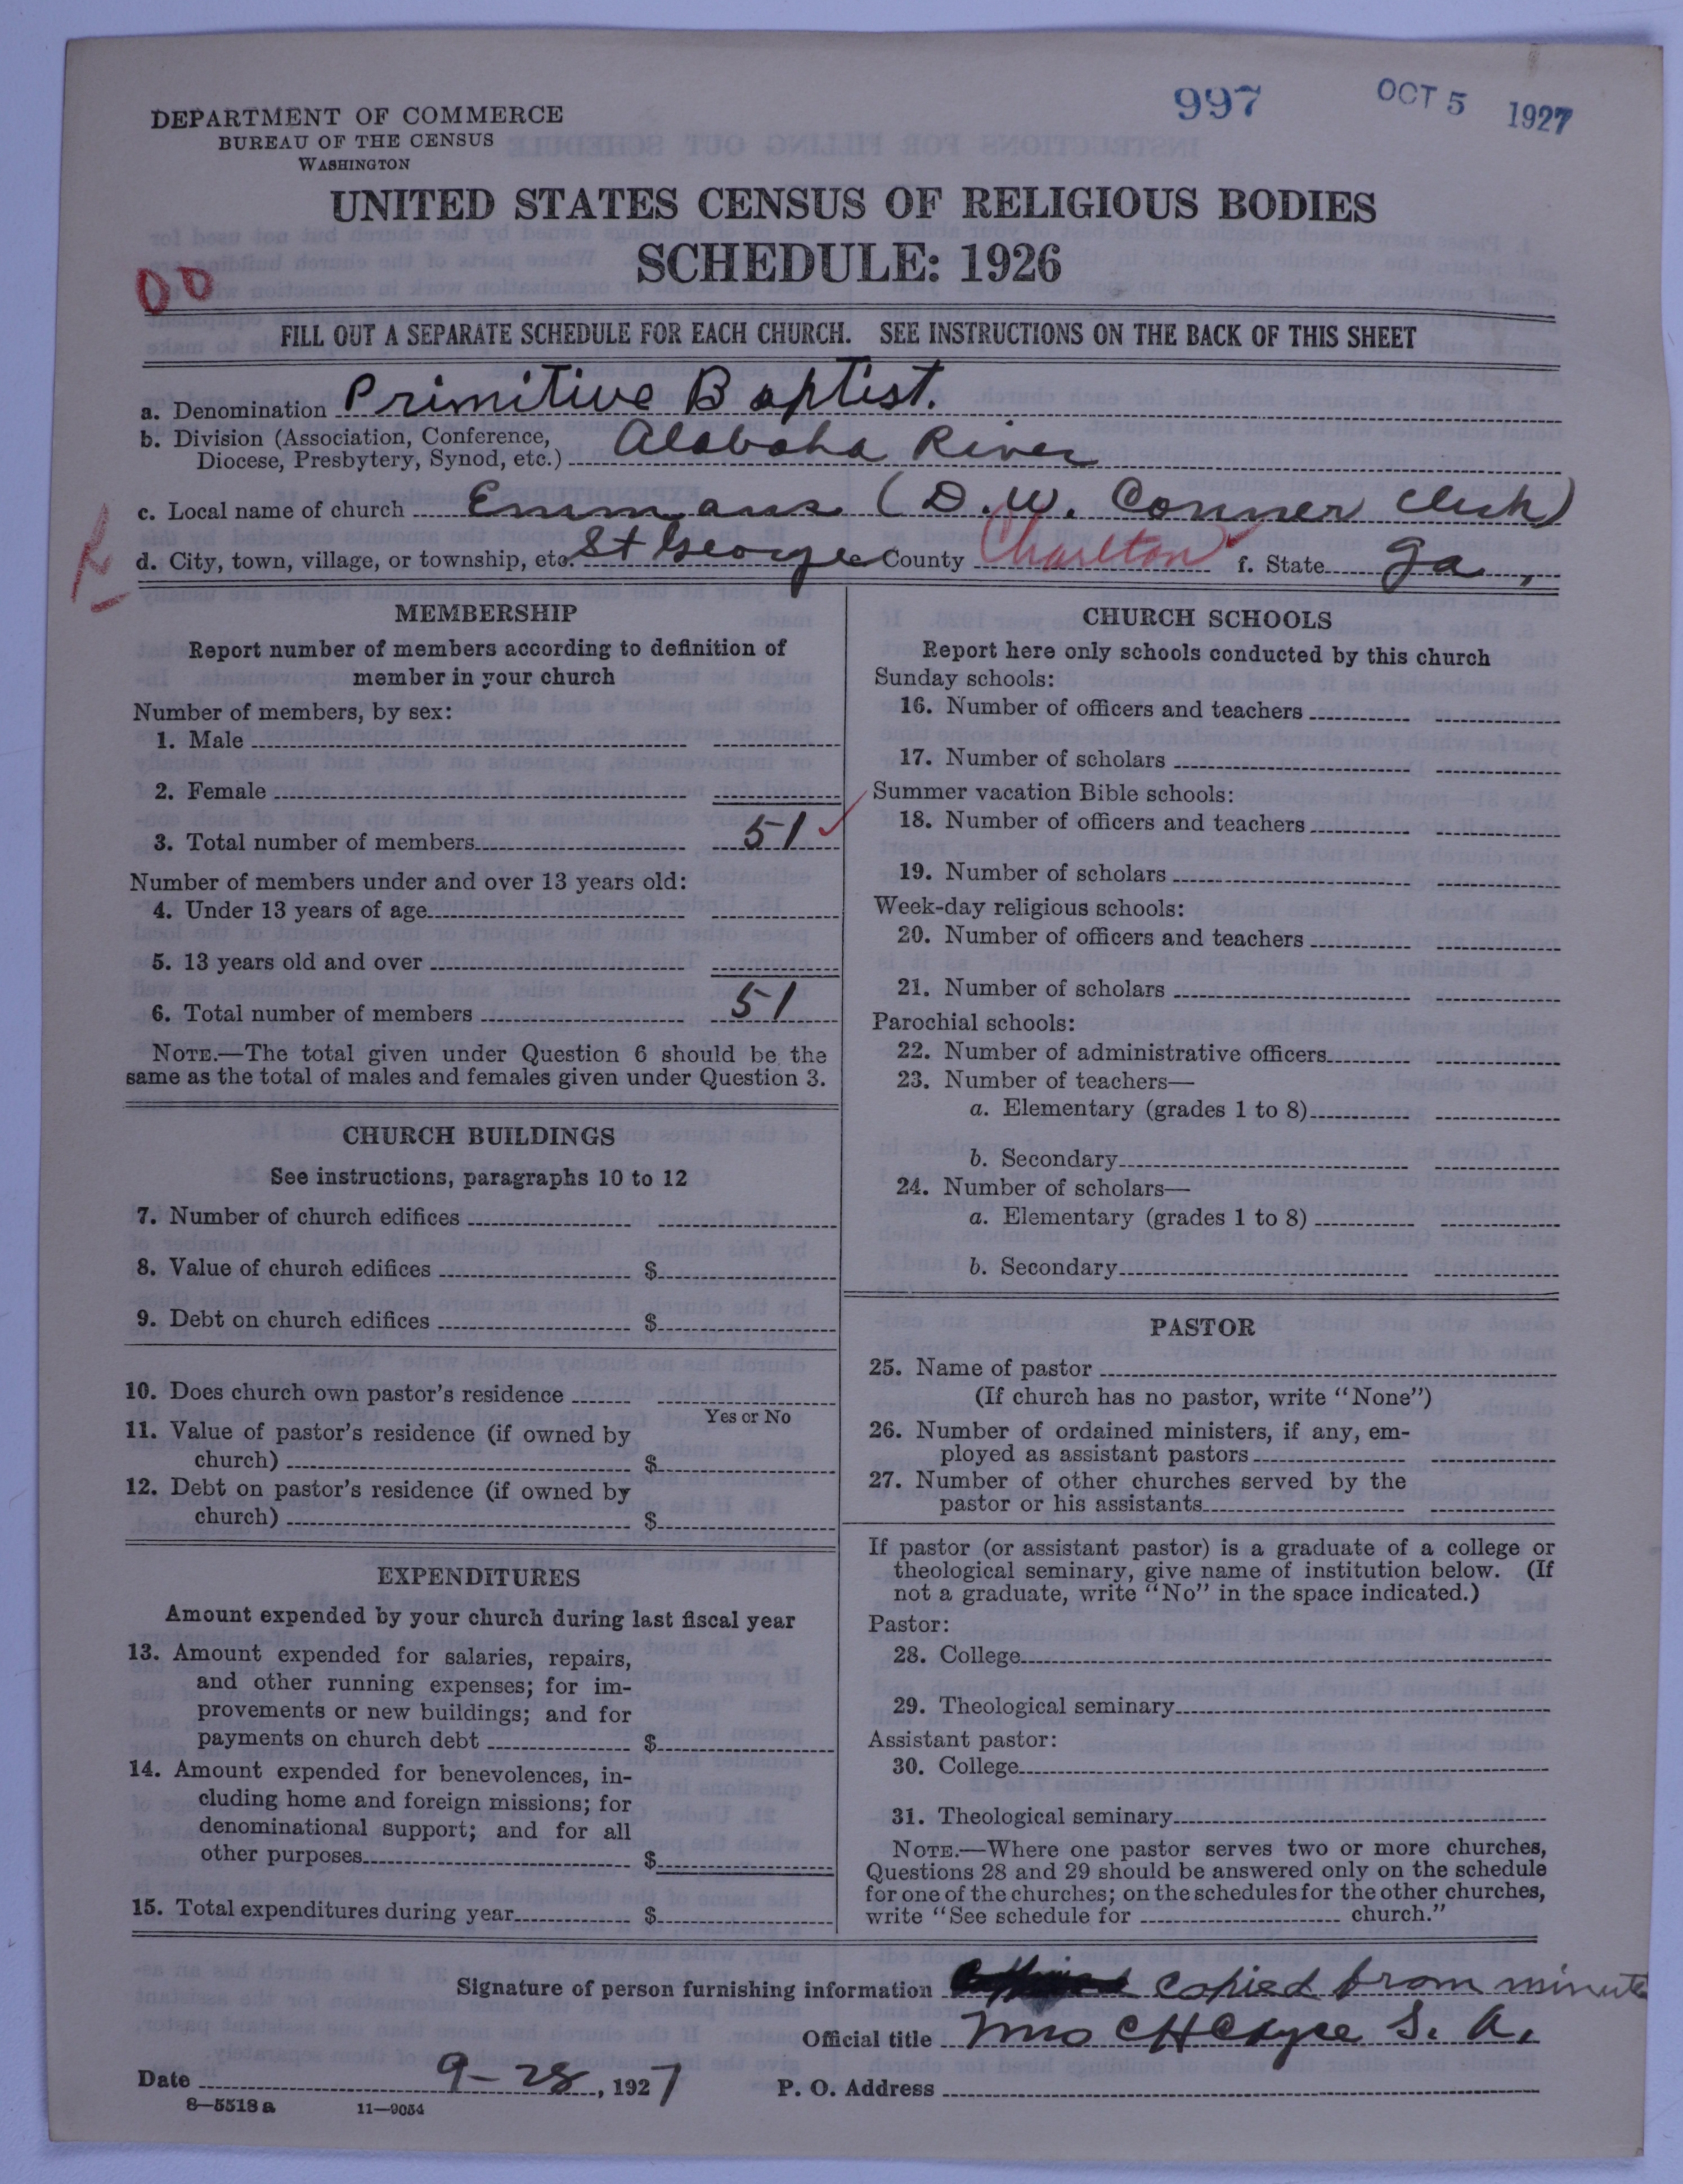 997 OCT 5 1927
DEPARTMENT OF COMMERCE
BUREAU OF THE CENSUS
WASHINGTON
UNITED STATES CENSUS OF RELIGIOUS BODIES
SCHEDULE: 1926
00
FILL OUT A SEPARATE SCHEDULE FOR EACH CHURCH. SEE INSTRUCTIONS ON THE BACK OF THIS SHEET
a. Denomination Primitive Baptist.
b. Division (Association, Conference,
Diocese, Presbytery, Synod, etc.) Alabaha River
c. Local name of church Emmaus (D.W. Conner Clerk)
d. City, town, village, or township, etc. St George County Charlton f. State Ga,
MEMBERSHIP
Report number of members according to definition of
member in your church
Number of members, by sex:
1. Male
2. Female
3. Total number of members 51
Number of members under and over 13 years old:
4. Under 13 years of age
5. 13 years old and over
6. Total number of members 51
NOTE.—The total given under Question 6 should be the
same as the total of males and females given under Question 3.
CHURCH BUILDINGS
See instructions, paragraphs 10 to 12
7. Number of church edifices
8. Value of church edifices $
9. Debt on church edifices $
10. Does church own pastor's residence
Yes or No
11. Value of pastor's residence (if owned by
church) $
12. Debt on pastor's residence (if owned by
church) $
EXPENDITURES
Amount expended by your church during last fiscal year
13. Amount expended for salaries, repairs,
and other running expenses; for im-
provements or new buildings; and for
payments on church debt $
14. Amount expended for benevolences, in-
cluding home and foreign missions; for
denominational support; and for all
other purposes $
15. Total expenditures during year $
CHURCH SCHOOLS
Report here only schools conducted by this church
Sunday schools:
16. Number of officers and teachers
17. Number of scholars
Summer vacation Bible schools:
18. Number of officers and teachers
19. Number of scholars
Week-day religious schools:
20. Number of officers and teachers
21. Number of scholars
Parochial schools:
22. Number of administrative officers
23. Number of teachers—
a. Elementary (grades 1 to 8)
b. Secondary
24. Number of scholars—
a. Elementary (grades 1 to 8)
b. Secondary
PASTOR
25. Name of pastor
(If church has no pastor, write "None")
26. Number of ordained ministers, if any, em-
ployed as assistant pastors
27. Number of other churches served by the
pastor or his assistants
If pastor (or assistant pastor) is a graduate of a college or
theological seminary, give name of institution below. (If
not a graduate, write "No" in the space indicated.)
Pastor:
28. College
29. Theological seminary
Assistant pastor:
30. College
31. Theological seminary
NOTE.—Where one pastor serves two or more churches,
Questions 28 and 29 should be answered only on the schedule
for one of the churches; on the schedules for the other churches,
write "See schedule for church."
Signature of person furnishing information copied from minute
Official title Mrs C H S. A.
Date 9-28, 1927 P. O. Address
8—5518a 11—9054